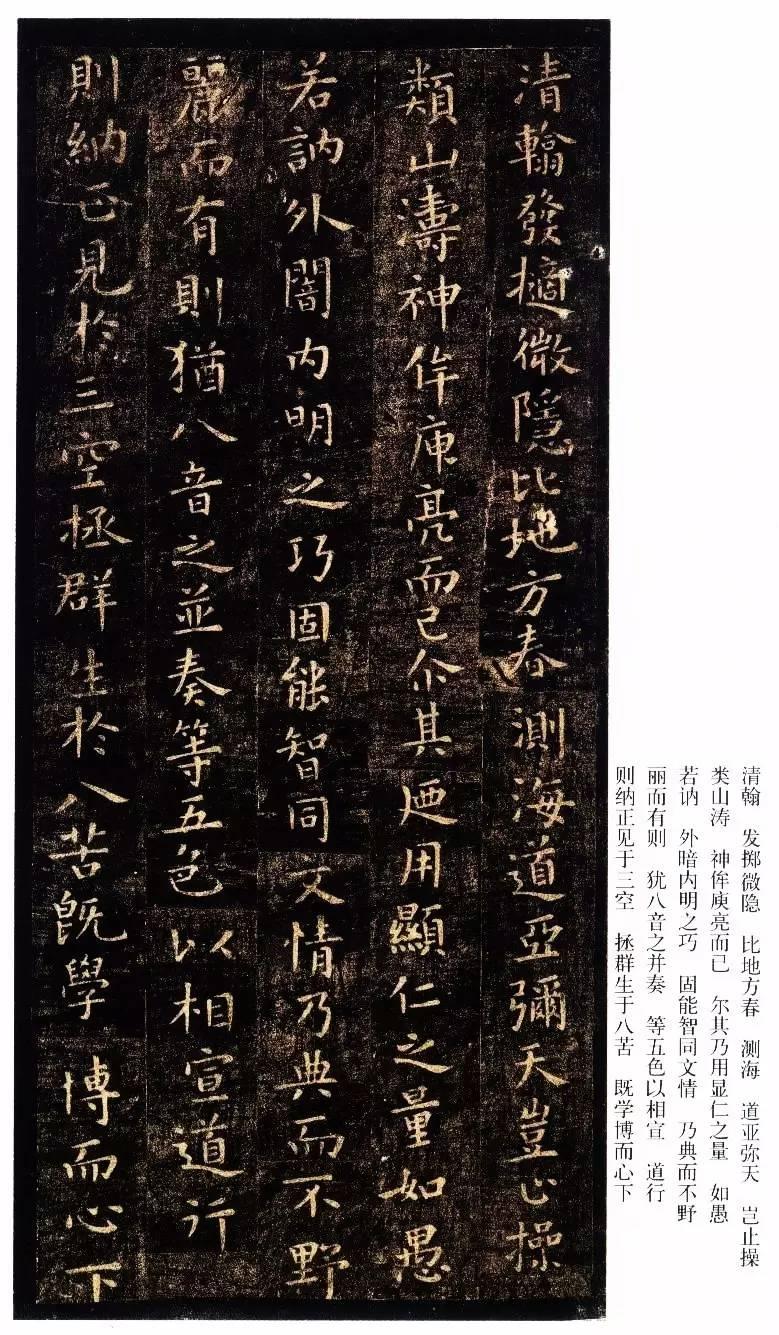 清翰發擿微隱比地方春測海道亞彌天豈止操
類山濤神侔庾亮而已尒其廼用顯仁之量如愚
若訥外闇内明之巧固能智同文情乃典而不野
麗而有則猶八音之並奏等五色以相宣道行
則納正見於三空拯群生於八苦旣學博而心下
清翰 发掷微隐 比地方春 测海 道亚弥天 岂止操
类山涛 神侔庾亮而已 尔其乃用显仁之量 如愚
若讷 外暗内明之巧 固能智同文情 乃典而不野
丽而有则 犹八音之并奏 等五色以相宣 道行
则纳正见于三空 拯群生于八苦 既学博而心下